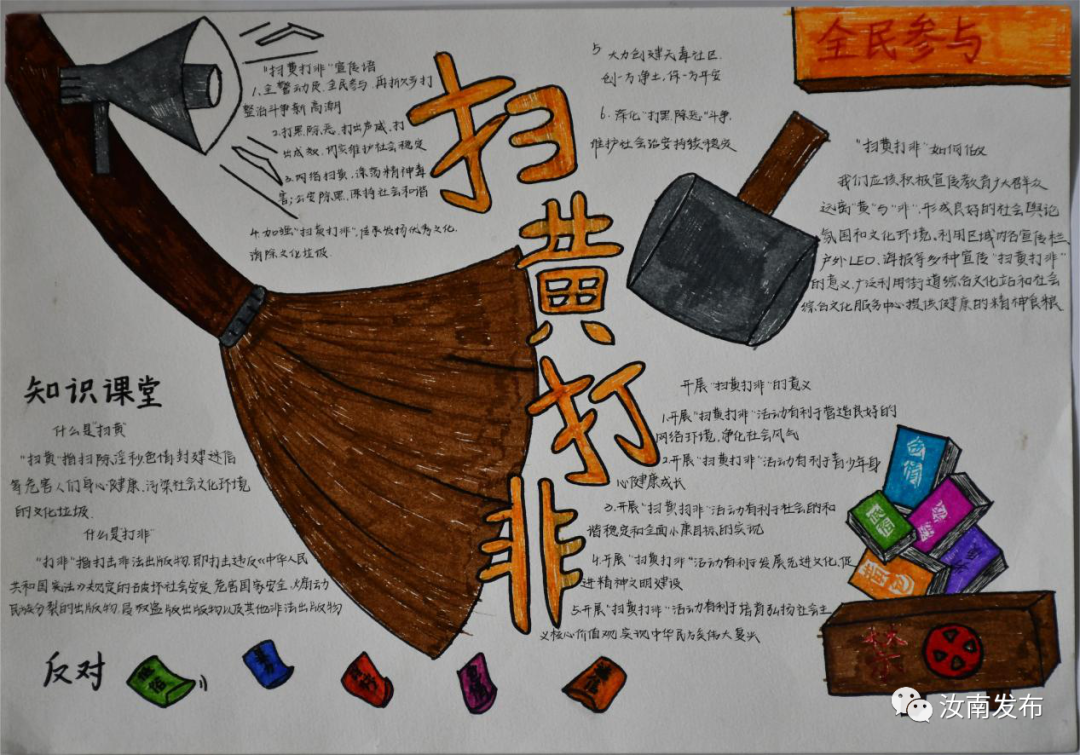 扫黄打非
全民参与
"扫黄打非"宣传语
1.主警动员、全民参与、再掀欢乡打
整治斗争新高潮
2.打黑除恶、打出声威、打
出成效、切实维护社会稳定
3.网络扫黄,涤荡精神毒
害;云安除黑,保持社会和谐
4.加强"扫黄打非",传承发扬优秀文化,
消除文化垃圾.
5 大力创建无毒社区.
创一方净土,保一方平安
6.深化"打黑除恶"斗争,
维护社会治安持续稳定
"扫黄打非"如何做
我们应该积极宣传教育广大群众
远离"黄"与"非",形成良好的社会舆论
氛围和文化环境。利用区域内的宣传栏、
户外LED、海报等多种宣传"扫黄打非"
的意义,广泛利用街道综合文化站和社会
综合文化服务中心提供健康的精神食粮
知识课堂
什么是"扫黄"
"扫黄"指扫除淫秽色情封建迷信
等危害人们身心健康、污染社会文化环境
的文化垃圾.
什么是打非"
"打非"指打击非法出版物,即打击违反《中华人民
共和国宪法》规定的破坏社会安定、危害国家安全、煽动
民族分裂的出版物,侵权盗版出版物以及其他非法出版物
开展"扫黄打非"的意义
1.开展"扫黄打非"活动有利于营造良好的
网络环境,净化社会风气
2.开展"扫黄打非"活动有利于青少年身
心健康成长
3.开展"扫黄打非"活动有利于社会的和
谐稳定和全面小康目标的实现
4.开展"扫黄打非"活动有利于发展先进文化,促
进精神文明建设
5.开展"扫黄打非"活动有利于培育弘扬社会主
义核心价值观,实现中华民族伟大复兴
反对
禁
汝南发布